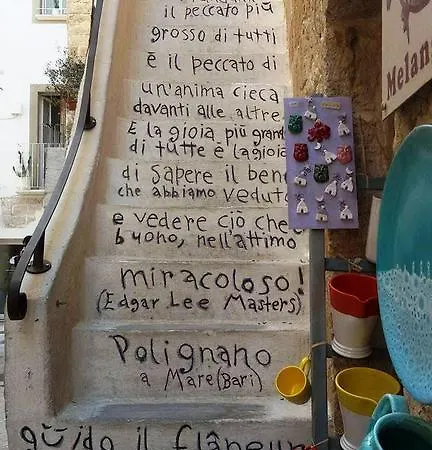 il peccato più
grosso di tutti
è il peccato di
un'anima cieca
davanti alle altre
E la gioia più grand
di tutte è la gioia
di sapere il bene
che abbiamo veduto
e vedere ciò che è
buono, nell'attimo
miracoloso!
(Edgar Lee Masters)
Polignano
a Mare (Bari)
guido il flâneur
Melan